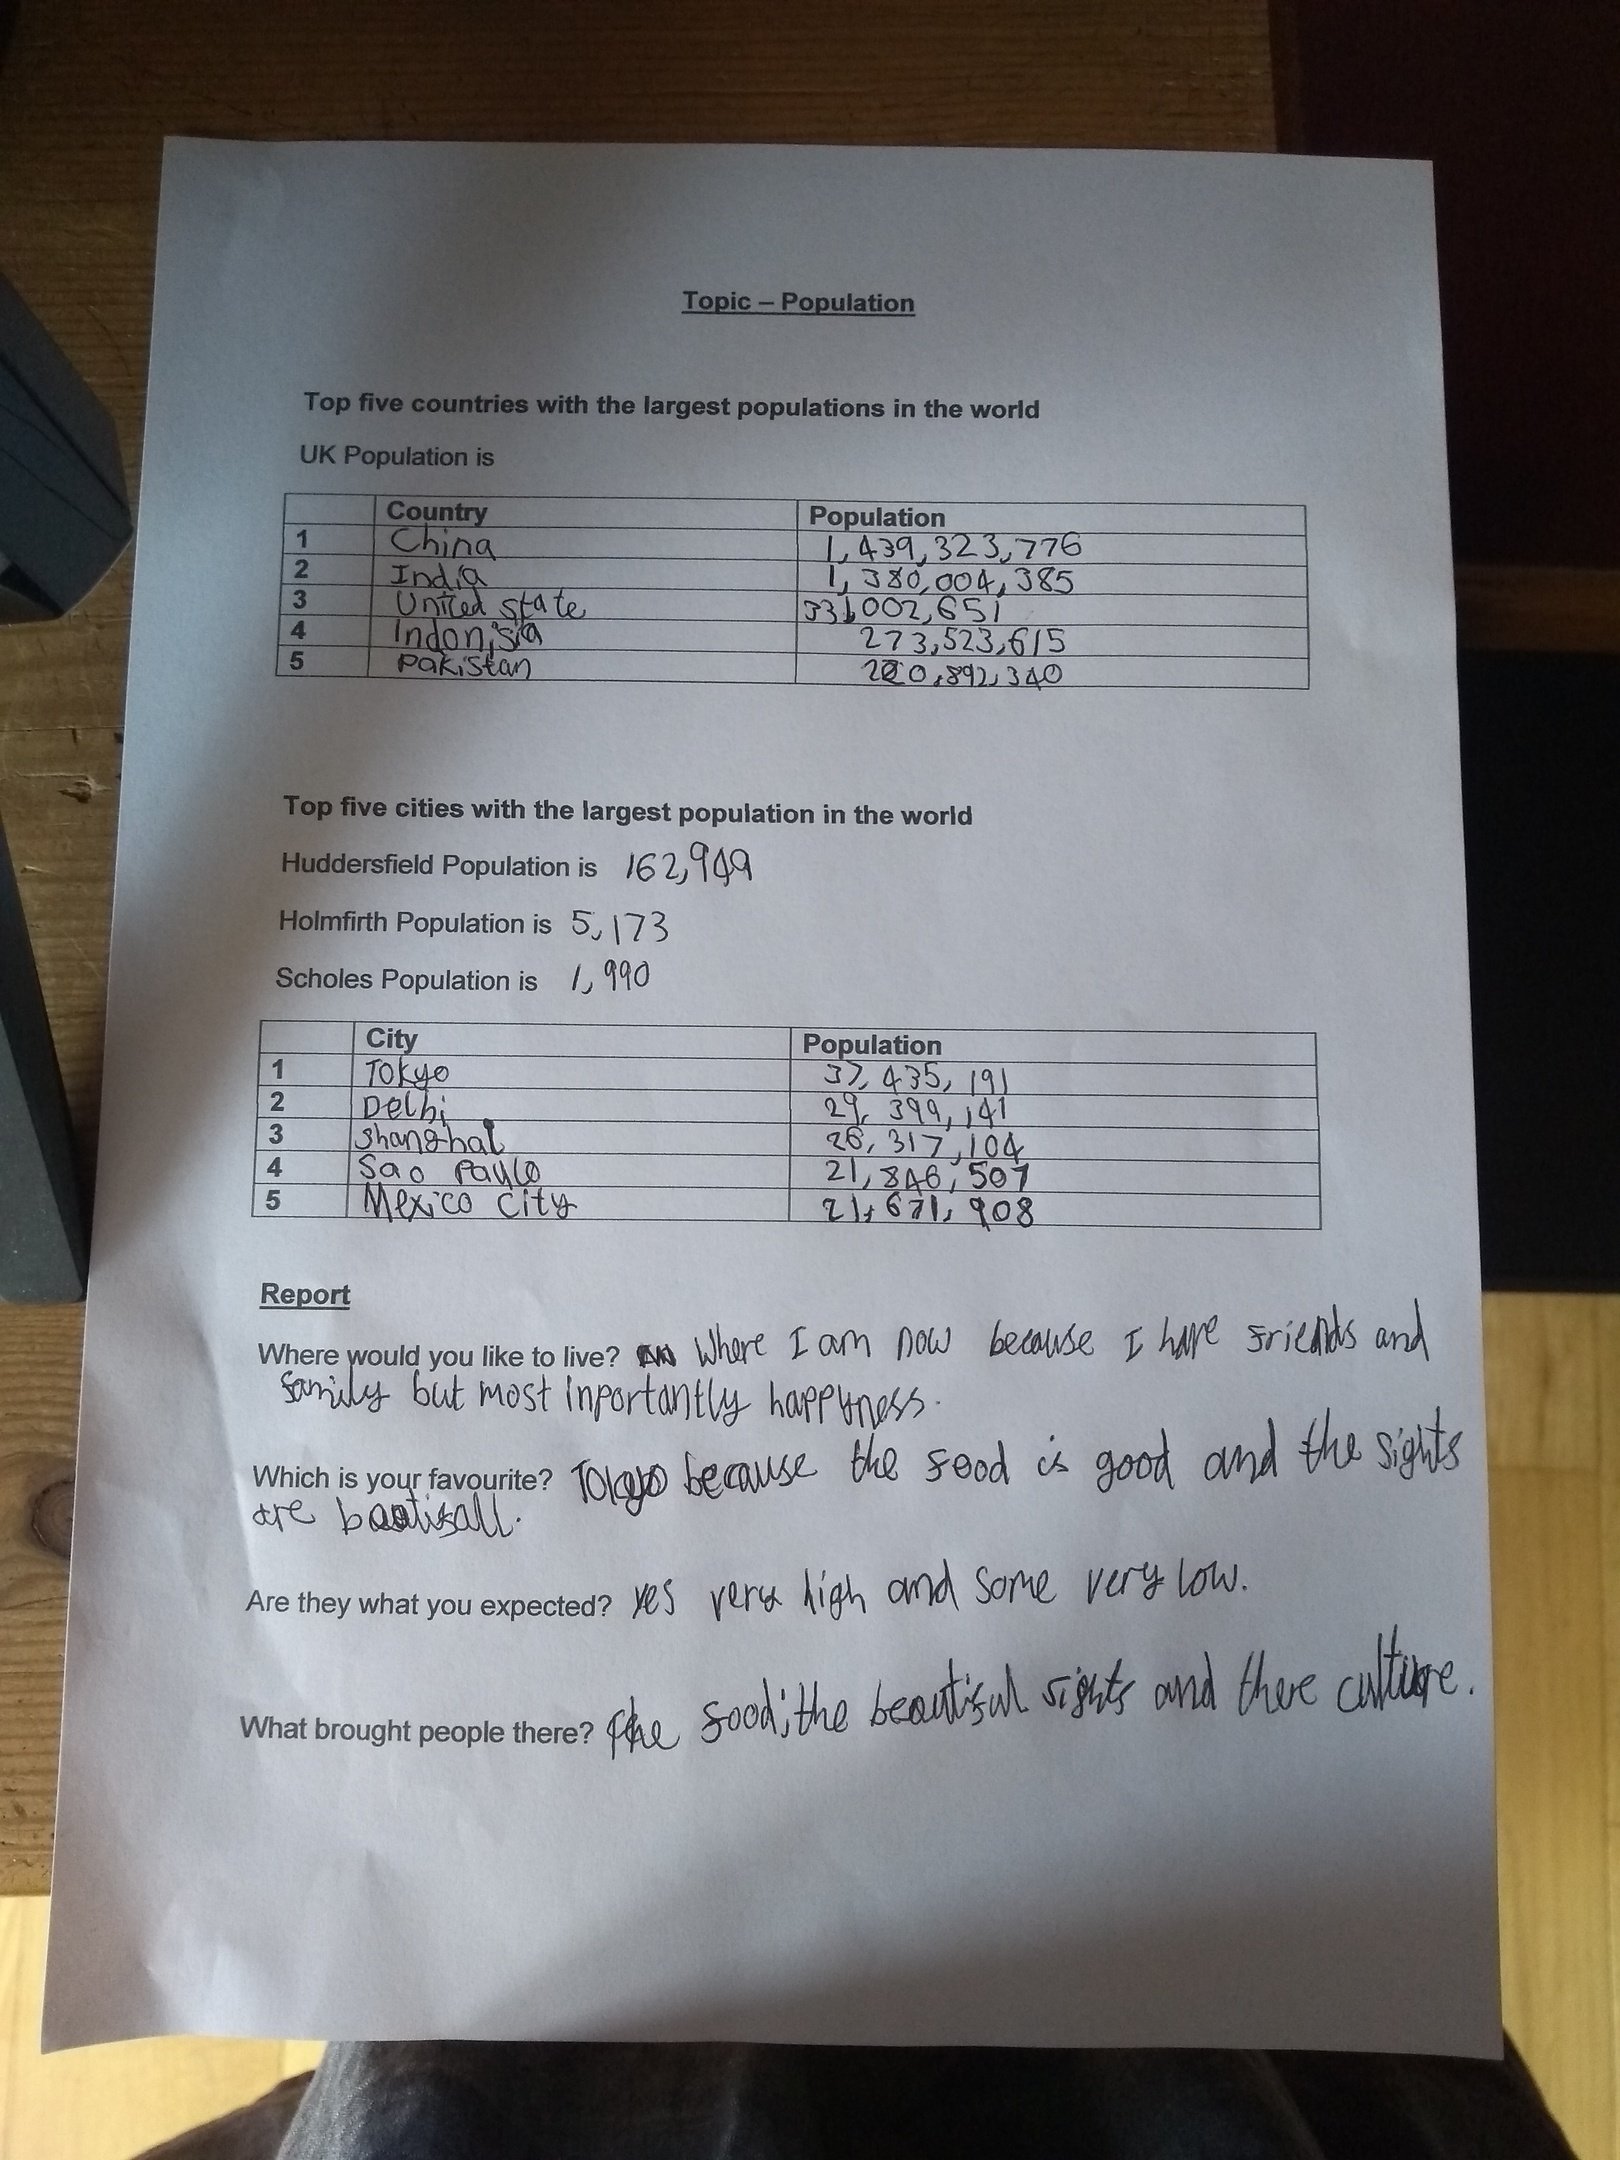 Topic – Population
Top five countries with the largest populations in the world
UK Population is
Country Population
1 China 1,439,323,776
2 India 1,380,004,385
3 United state 331,002,651
4 Indonisia 273,523,615
5 Pakistan 220,892,340
Top five cities with the largest population in the world
Huddersfield Population is 162,949
Holmfirth Population is 5,173
Scholes Population is 1,990
City Population
1 Tokyo 37,435,191
2 Delhi 29,399,141
3 Shanghai 26,317,104
4 Sao Paulo 21,846,507
5 Mexico City 21,671,908
Report
Where would you like to live? Where I am now because I have friends and
family but most inportantly happyness.
Which is your favourite? Tokyo because the food is good and the sights
are
Are they what you expected? yes very high and some very low.
What brought people there? The food, the beautiful sights and there culture.